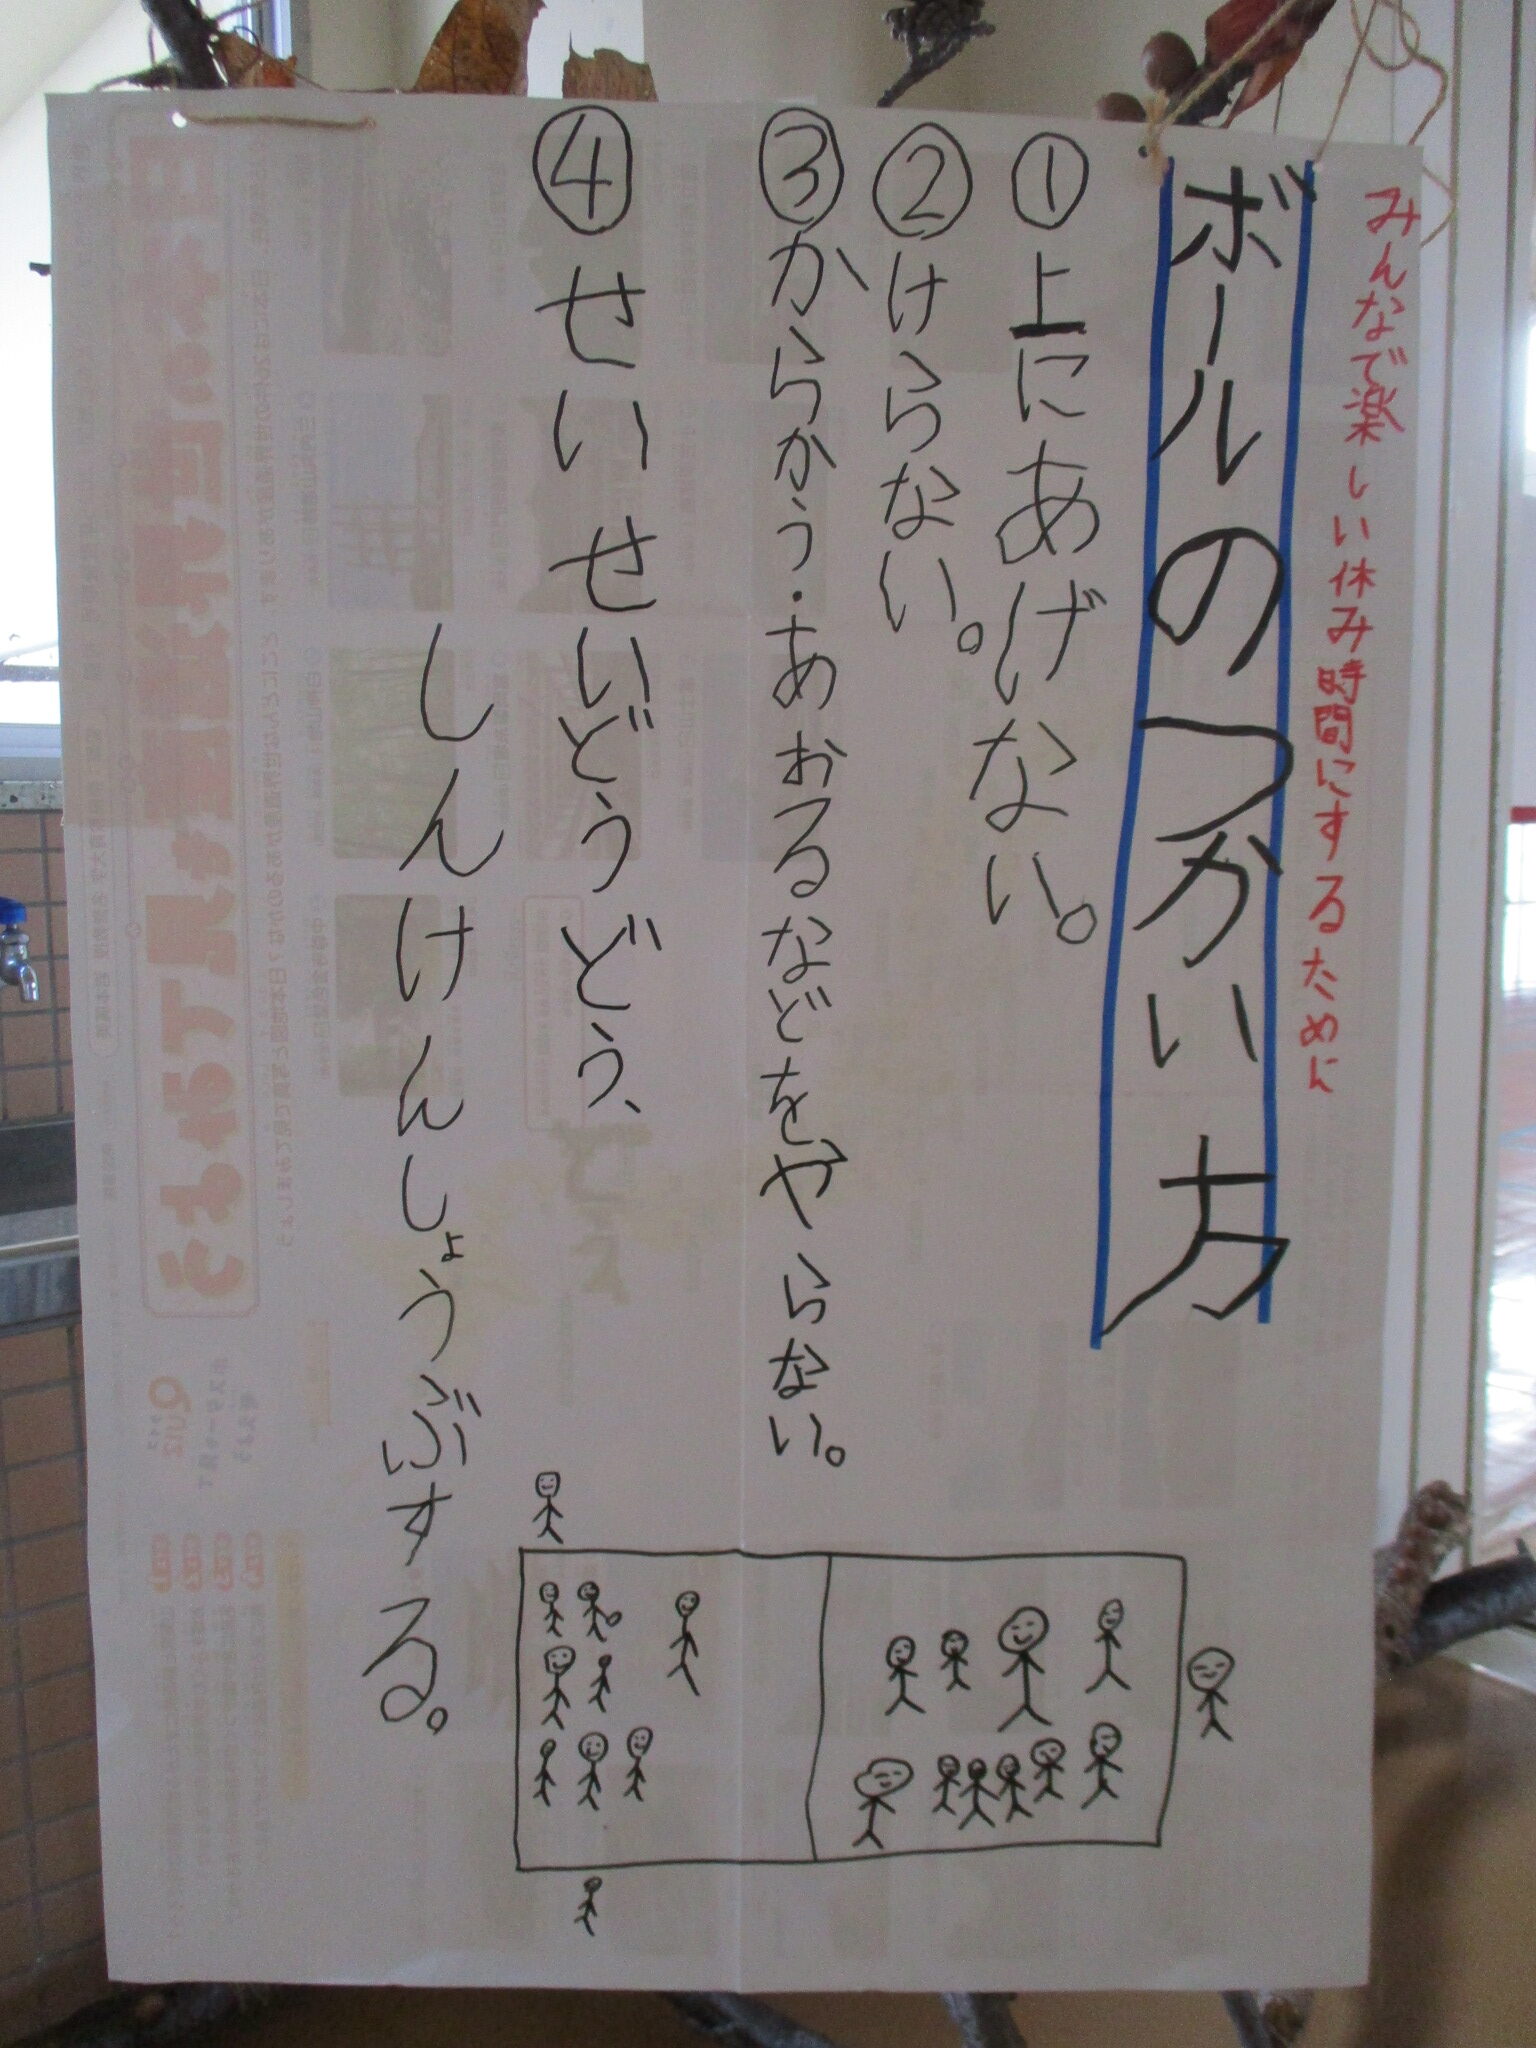 みんなで楽しい休み時間にするために
ボールのつかい方
①上にあげない。
②けらない。
③からかう・あおるなどをやらない。
④せいせいどうどう、
しんけんしょうぶする。